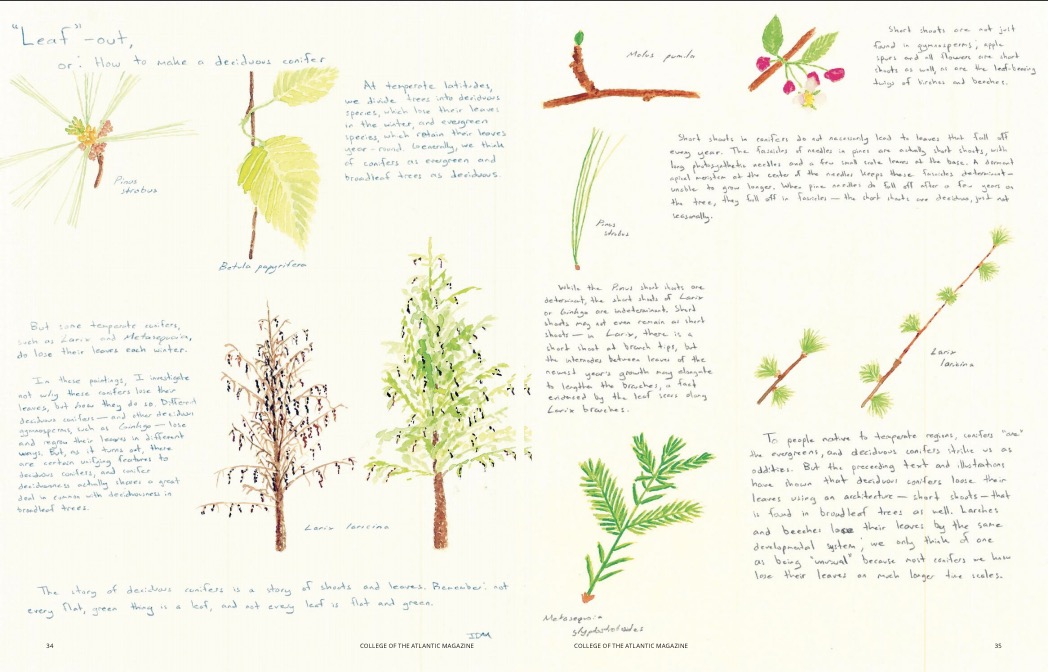 "Leaf"-out,
or: How to make a deciduous conifer
Pinus
strobus
Betula papyrifera
At temperate latitudes,
we divide trees into deciduous
species, which lose their leaves
in the winter, and evergreen
species, which retain their leaves
year-round. Generally, we think
of conifers as evergreen and
broadleaf trees as deciduous.
But some temperate conifers,
such as Larix and Metasequoia,
do lose their leaves each winter.
In these paintings, I investigate
not why these conifers lose their
leaves, but how they do so. Different
deciduous conifers — and other deciduous
gymnosperms, such as Ginkgo — lose
and regrow their leaves in different
ways. But, as it turns out, there
are certain unifying features to
deciduous conifers, and conifer
deciduousness actually shares a great
deal in common with deciduousness in
broadleaf trees.
Larix laricina
The story of deciduous conifers is a story of shoots and leaves. Remember: not
every flat, green thing is a leaf, and not every leaf is flat and green.
IDM
34
COLLEGE OF THE ATLANTIC MAGAZINE
Malus pumila
Short shoots are not just
found in gymnosperms; apple
spurs and all flowers are short
shoots as well, as are the leaf-bearing
twigs of birches and beeches.
Short shoots in conifers do not necessarily lead to leaves that fall off
every year. The fascicles of needles in pines are actually short shoots, with
long photosynthetic needles and a few small scale leaves at the base. A dormant
apical meristem at the center of the needles keeps these fascicles determinate—
unable to grow longer. When pine needles do fall off after a few years on
the tree, they fall off in fascicles — the short shoots are deciduous, just not
seasonally.
Pinus
strobus
While the Pinus short shoots are
determinate, the short shoots of Larix
or Ginkgo are indeterminate. Short
shoots may not even remain as short
shoots — in Larix, there is a
short shoot at branch tips, but
the internodes between leaves of the
newest year's growth may elongate
to lengthen the branches, a fact
evidenced by the leaf scars along
Larix branches.
Larix
laricina
Metasequoia
glyptostroboides
To people native to temperate regions, conifers "are"
the evergreens, and deciduous conifers strike us as
oddities. But the preceding text and illustrations
have shown that deciduous conifers loose their
leaves using an architecture — short shoots — that
is found in broadleaf trees as well. Larches
and beeches lose their leaves by the same
developmental system; we only think of one
as being "unusual" because most conifers we know
lose their leaves on much longer time scales.
COLLEGE OF THE ATLANTIC MAGAZINE
35